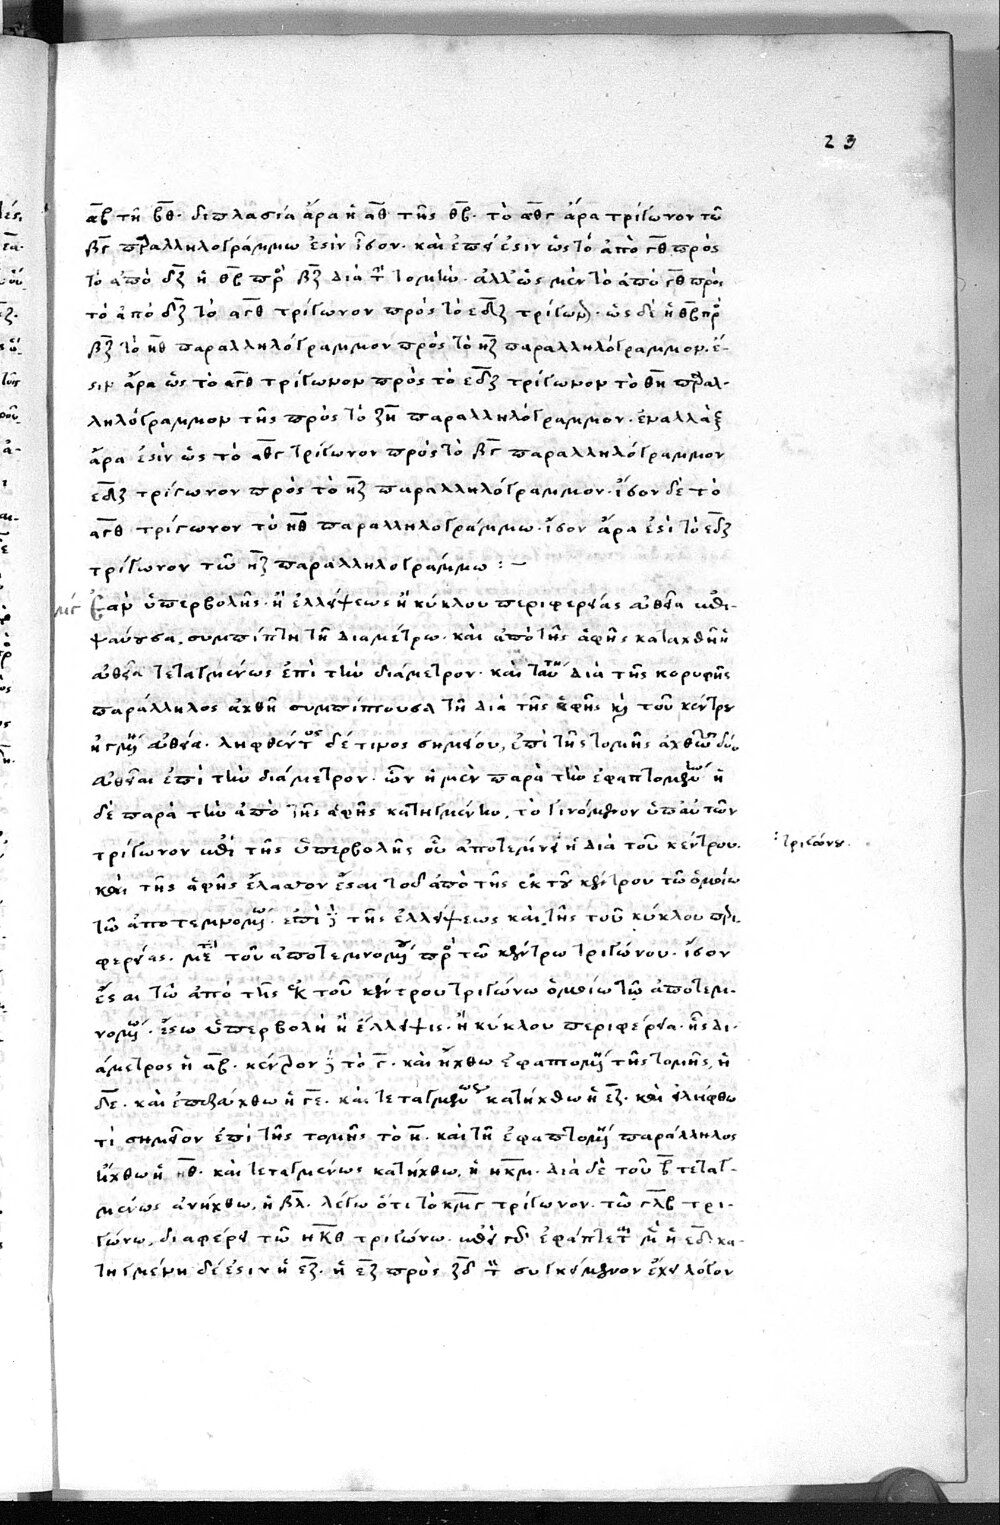 23
αβ τῆ βθ· διπλασία ἄρα ἡ αθ τῆς θβ· τὸ αθγ ἄρα τρίγωνον τῶ
βγ παραλληλογράμμω ἐστὶν ἴσον· καὶ ἐπεί ἐστιν ὡς τὸ ἀπὸ γθ πρὸς
τὸ ἀπὸ δζ ἡ θβ πρὸς βζ διὰ τὴν τομὴν· ἀλλ' ὡς μὲν τὸ ἀπὸ γθ πρὸς
τὸ ἀπὸ δζ τὸ αγθ τρίγωνον πρὸς τὸ εδζ τρίγωνον· ὡς δὲ ἡ θβ πρὸς
βζ τὸ ηθ παραλληλόγραμμον πρὸς τὸ ηζ παραλληλόγραμμον· ἔ-
στιν ἄρα ὡς τὸ αγθ τρίγωνον πρὸς τὸ εδζ τρίγωνον τὸ θη παραλ-
ληλόγραμμον τῆς πρὸς τὸ ζη παραλληλόγραμμον· ἐναλλὰξ
ἄρα ἐστὶν ὡς τὸ αθγ τρίγωνον πρὸς τὸ βγ παραλληλόγραμμον
εδζ τρίγωνον πρὸς τὸ ηζ παραλληλόγραμμον· ἴσον δὲ τὸ
αγθ τρίγωνον τὸ ηθ παραλληλογράμμω· ἴσον ἄρα ἐστὶ τὸ εδζ
τρίγωνον τῶ ηζ παραλληλογράμμω :–
μγ Ἐὰν ὑπερβολῆς· ἢ ἐλλείψεως ἢ κύκλου περιφερείας εὐθεῖα ἐπι-
ψαύουσα, συμπίπτη τῆ διαμέτρω· καὶ ἀπὸ τῆς ἁφῆς καταχθῆ ἡ
εὐθεῖα τεταγμένως ἐπὶ τὴν διάμετρον· καὶ ταύτη διὰ τῆς κορυφῆς
παράλληλος ἀχθῆ συμπίπτουσα τῆ διὰ τῆς ἁφῆς καὶ τοῦ κέντρου
ἠγμένη εὐθεία· ληφθέντος δέ τινος σημείου, ἐπὶ τῆς τομῆς ἀχθῶσι δύο
εὐθεῖαι ἐπὶ τὴν διάμετρον· ὧν ἡ μὲν παρὰ τὴν ἐφαπτομένην ἡ
δὲ παρὰ τὴν ἀπὸ τῆς ἁφῆς κατηγμένην, τὸ γινόμενον ὑπ' αὐτῶν
τρίγωνον ἐπὶ τῆς ὑπερβολῆς οὗ ἀποτέμνει ἡ διὰ τοῦ κέντρου. :τριγώνου.
καὶ τῆς ἁφῆς ἔλασσον ἔσται τοῦ ἀπὸ τῆς ἐκ τοῦ κέντρου τῶ ὁμοίω
τῶ ἀποτεμνομένω· ἐπὶ δὲ τῆς ἐλλείψεως καὶ τῆς τοῦ κύκλου περι-
φερείας· μετὰ τοῦ ἀποτεμνομένου πρὸς τῶ κέντρω τριγώνου· ἴσον
ἔσται τῶ ἀπὸ τῆς ἐκ τοῦ κέντρου τριγώνω ὁμοίω τῶ ἀποτεμ-
νομένω· ἔστω ὑπερβολὴ ἢ ἔλλειψις· ἢ κύκλου περιφέρεια· ἧς δι-
άμετρος ἡ αβ· κέντρον δὲ τὸ γ· καὶ ἤχθω ἐφαπτομένη τῆς τομῆς, ἡ
δε· καὶ ἐπεζεύχθω ἡ γε· καὶ τεταγμένως κατήχθω ἡ εζ· καὶ εἰλήφθω
τὶ σημεῖον ἐπὶ τῆς τομῆς τὸ η· καὶ τῆ ἐφαπτομένη παράλληλος
ἤχθω ἡ ηθ· καὶ τεταγμένως κατήχθω, ἡ ηκμ· διὰ δὲ τοῦ β τεταγ-
μένως ἀνήχθω, ἡ βλ· λέγω ὅτι τὸ κμγ τρίγωνον· τῶ γλβ τρι-
γώνω, διαφέρει τῶ ηκθ τριγώνω· ἐπεὶ γὰρ ἐφάπτεται μὲν ἡ εδ· κα-
τηγμένη δέ ἐστιν ἡ εζ· ἡ εζ πρὸς ζδ τὸν συγκείμενον ἔχει λόγον